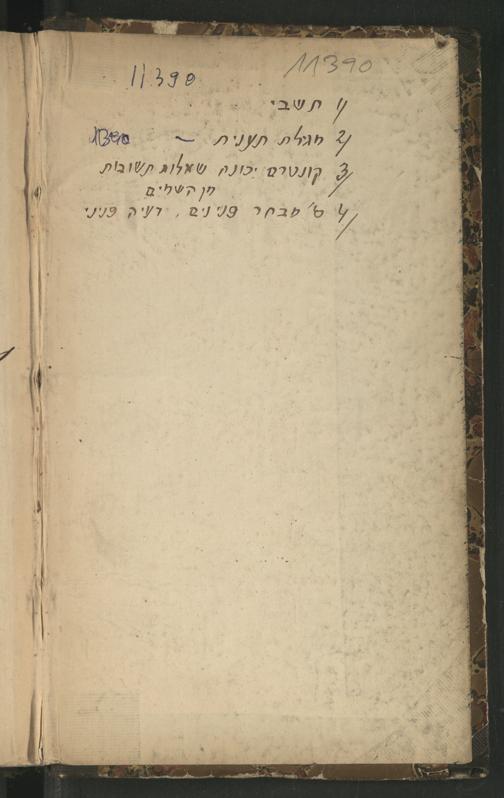 11390 11390
1/ תשבי
2/ מגלת תענית — 11390
3/ קונטרס יכונה שאלות תשובות
מן השמים
4/ ס' מבחר פנינים, רעיה פניני